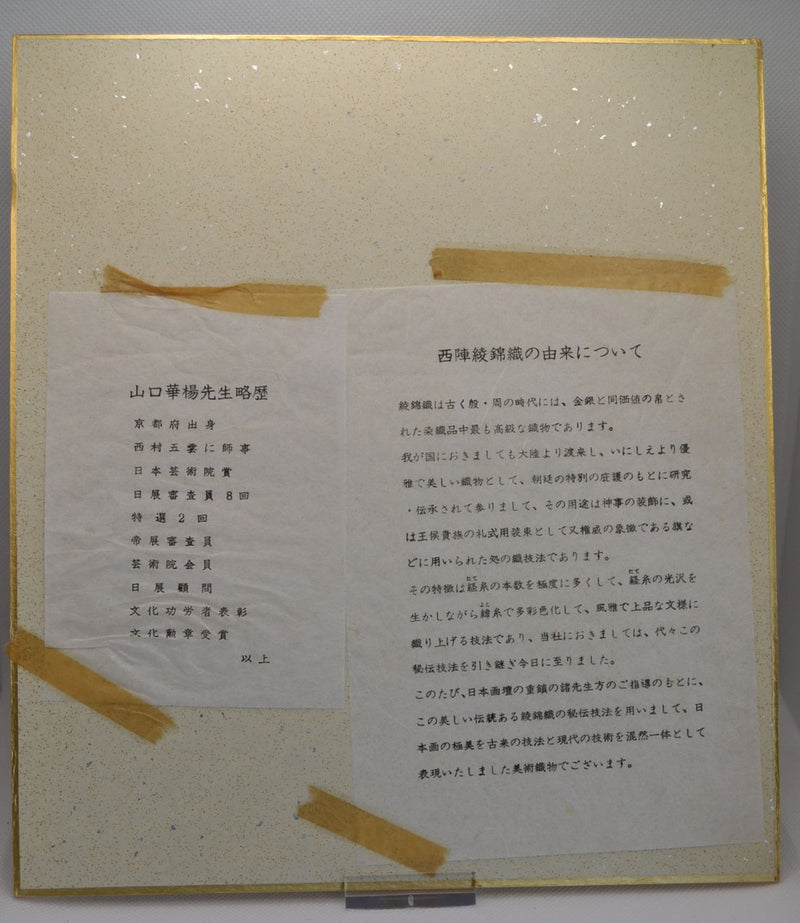 山口華楊先生略歴
京都府出身
西村五雲に師事
日本芸術院賞
日展審査員8回
特選2回
帝展審査員
芸術院会員
日展顧問
文化功労省表彰
文化勲章受賞
以上
西陣綾錦織の由来について
綾錦織は古く殷・周の時代には、金銀と同価値の帛とさ
れた染織品中最も高級な織物であります。
我が国におきましても大陸より渡来し、いにしえより優
雅で美しい織物として、朝廷の特別の庇護のもとに研究
・伝承されて参りまして、その用途は神事の装飾に、或
は王侯貴族の礼式用装束として又権威の象徴である旗な
どに用いられた処の織技法であります。
その特徴は経糸の本数を極度に多くして、経糸の光沢を
生かしながら緯糸で多彩色化して、風雅で上品な文様に
織り上げる技法であり、当社におきましては、代々この
秘伝技法を引き継ぎ今日に至りました。
このたび、日本画壇の重鎮の諸先生方のご指導のもとに、
この美しい伝統ある綾錦織の秘伝技法を用いまして、日
本画の極美を古来の技法と現代の技術を混然一体として
表現いたしました美術織物でございます。